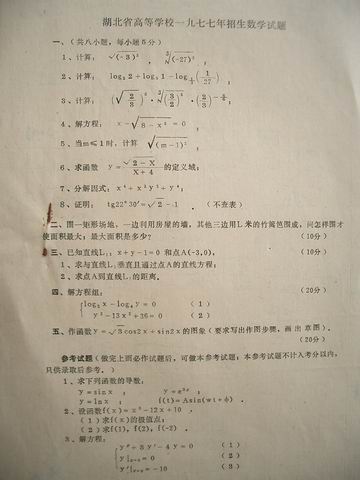 湖北省高等学校一九七七年招生数学试题
一、(共八小题，每小题5分)
1、计算： √(-3)² ， ∛(-27)² ；
2、计算： log₃2+log₃1-log
3、计算：
4、解方程： x-√8-x² = 0 ；
5、当m≤1时，计算 √(m-1)² ；
6、求函数 y=√2-X / X+4 的定义域；
7、分解因式：x⁴+x²y²+y⁴；
8、证明： tg22°30′=√2-1 . (不查表)
二、图一矩形场地，一边利用房屋的墙，其他三边用L米的竹篱笆围成，问怎样围才
使面积最大；最大面积是多少？ (10分)
三、已知直线L₁：x+y-1=0 和点A(-3,0)， (10分)
1、求与直线L₁垂直且通过点A的直线方程；
2、求点A到直线L₁的距离。
四、解方程组： (20分)
y²-13x²+36=0 (2)
五、作函数y=√3cos2x+sin2x的图象(要求写出作图步骤，画出草图)。
(20分)
参考试题(做完上面必作试题后，可做本参考试题；本参考试题不计入考分以内，
只供录取后参考。)
1、求下列函数的导数：
y=sinx ； y=e³ˣ ；
y=lnx ； f(t)=Asin(wt+ϕ) .
2、设函数f(x)=x³-12x+10 ，
(1)求f(x)的极值点；
(2)求f(1)，f(2)，f(-2) .
3、解方程：
y″+3y′-4y=0 (1)
(2)
(3)